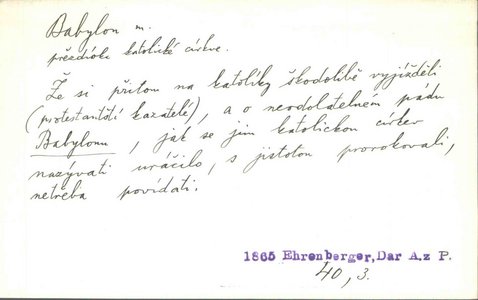 Babylon m.
přezdívka katolické církve.
Že si přitom na katolíky škodolibě vyjížděli
(protestantští kazatelé), a o neodolatelném pádu
Babylonu, jak se jim katolickou církev
nazývati uráčilo, s jistotou prorokovali,
netřeba povídati.
1865 Ehrenberger, Dar A.z P.
40, 3.